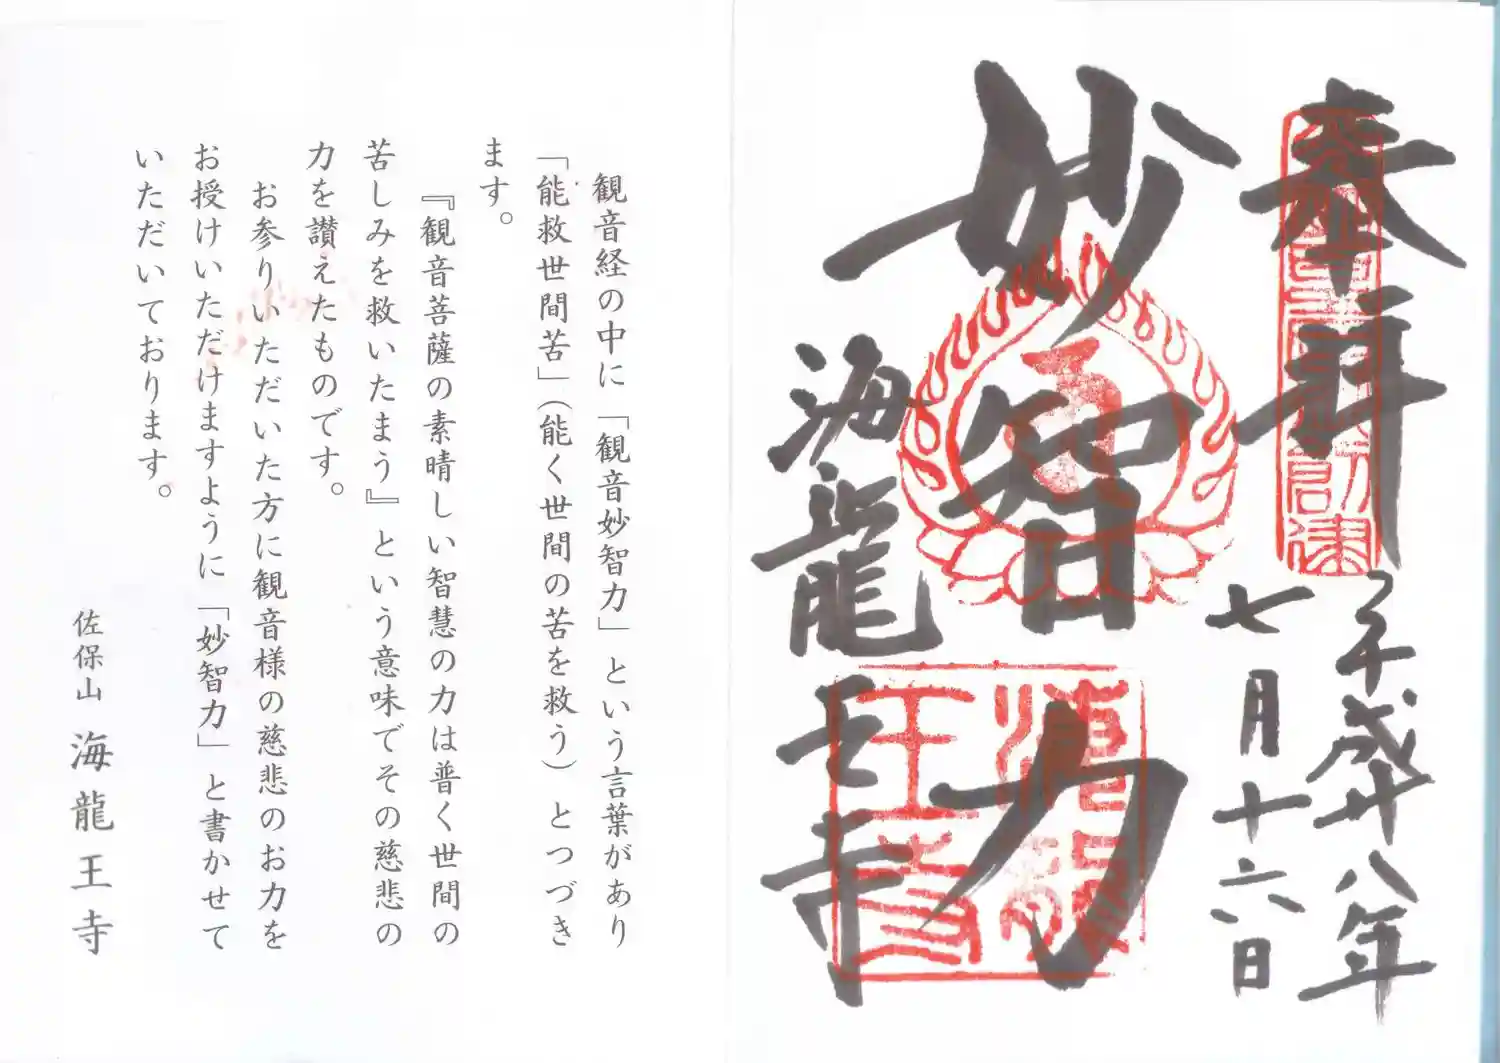 奉拝
平成廿八年
七月十六日
妙智力
海龍王寺
観音経の中に「観音妙智力」という言葉があり
「能救世間苦」（能く世間の苦を救う）とつづき
ます。
『観音菩薩の素晴しい智慧の力は普く世間の
苦しみを救いたまう』という意味でその慈悲の
力を讃えたものです。
お参りいただいた方に観音様の慈悲のお力を
お授けいただけますように「妙智力」と書かせて
いただいております。
佐保山 海龍王寺